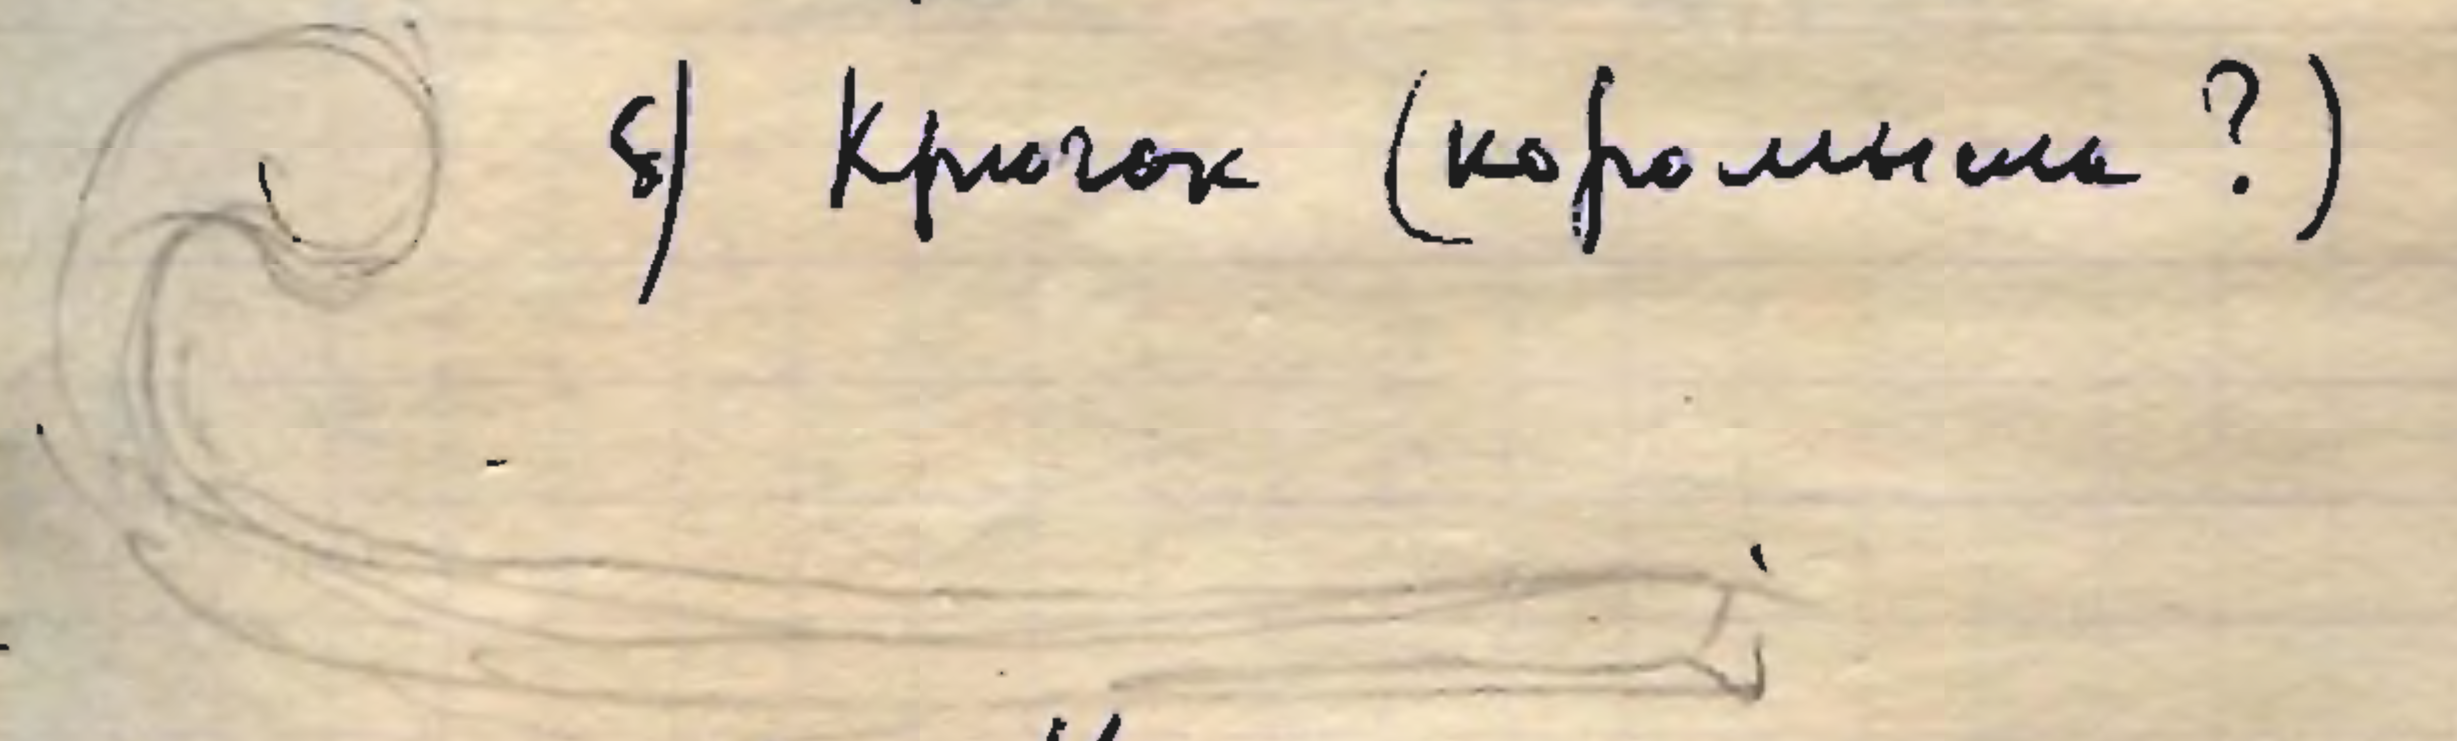 8) Крючок (коромысла ?)